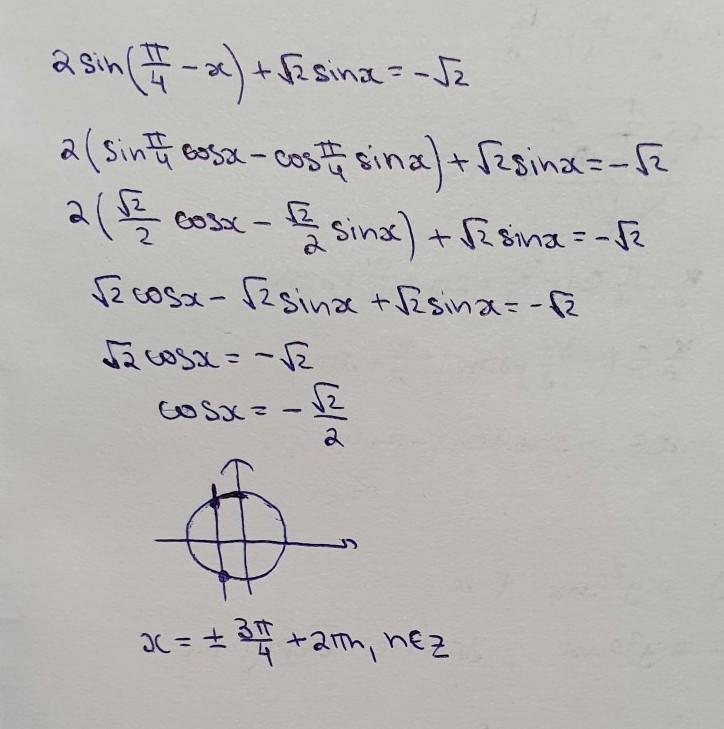 2sin(π/4 − x) + √2 sinx = −√2
2(sin π/4 cosx − cos π/4 sinx) + √2 sinx = −√2
2(√2/2 cosx − √2/2 sinx) + √2 sinx = −√2
√2 cosx − √2 sinx + √2 sinx = −√2
√2 cosx = −√2
cosx = −√2/2
x = ± 3π/4 + 2πn, n∈Z